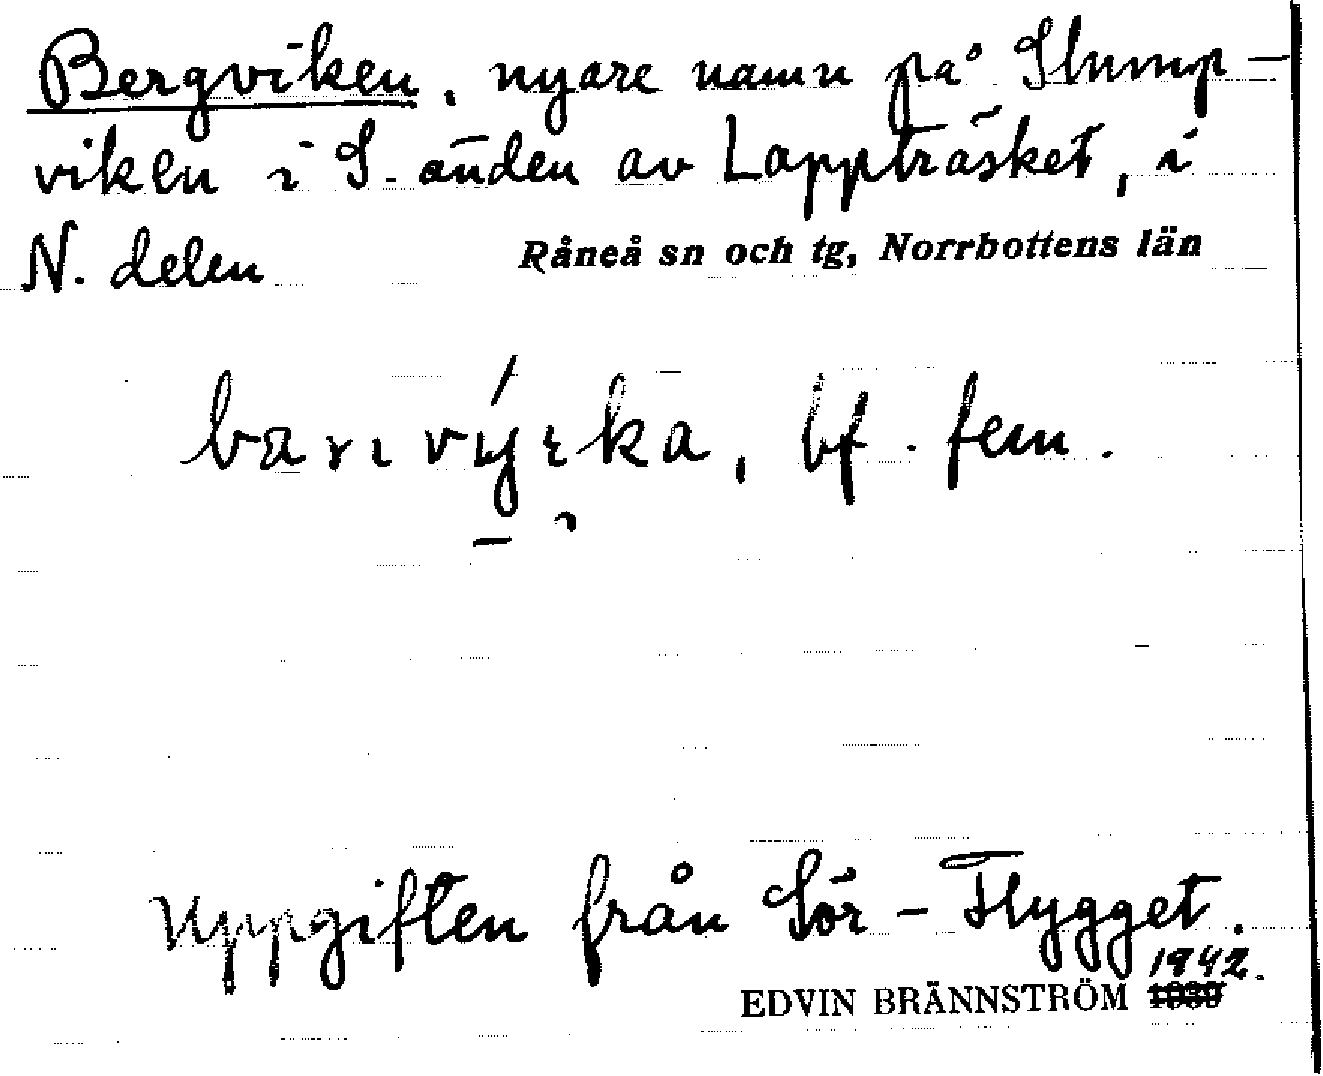 Bergviken, nyare namn på Slump-
viken i S. änden av Lappträsket, i
N. delen Råneå sn och tg, Norrbottens län
bf. fem.
Uppgiften från Sör-Flygget.
1942.
EDVIN BRÄNNSTRÖM 1939